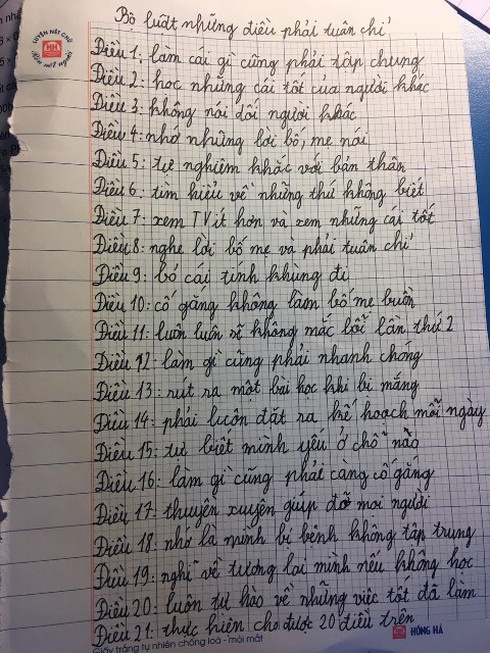 Bộ luật những điều phải tuân chỉ
LUYỆN NÉT CHỮ
RÈN NẾT NGƯỜI
HH
Điều 1: làm cái gì cũng phải tập chung
Điều 2: học những cái tốt của người khác
Điều 3: không nói dối người khác
Điều 4: nhớ những lời bố, mẹ nói
Điều 5: tự nghiêm khắc với bản thân
Điều 6: tìm hiểu về những thứ không biết
Điều 7: xem TV ít hơn và xem những cái tốt
Điều 8: nghe lời bố mẹ và phải tuân chỉ
Điều 9: bỏ cái tính khùng đi
Điều 10: cố gắng không làm bố mẹ buồn
Điều 11: luôn luôn sẽ không mắc lỗi lần thứ 2
Điều 12: làm gì cũng phải nhanh chóng
Điều 13: rút ra một bài học khi bị mắng
Điều 14: phải luôn đặt ra kế hoạch mỗi ngày
Điều 15: tự biết mình yếu ở chỗ nào
Điều 16: làm gì cũng phải càng cố gắng
Điều 17: thuyên xuyên giúp đỡ mọi người
Điều 18: nhớ là mình bị bệnh không tập trung
Điều 19: nghĩ về tương lai mình nếu không học
Điều 20: luôn tự hào về những việc tốt đã làm
Điều 21: thực hiện cho được 20 điều trên
Giấy trắng tự nhiên chống loá - mỏi mắt
HH HỒNG HÀ